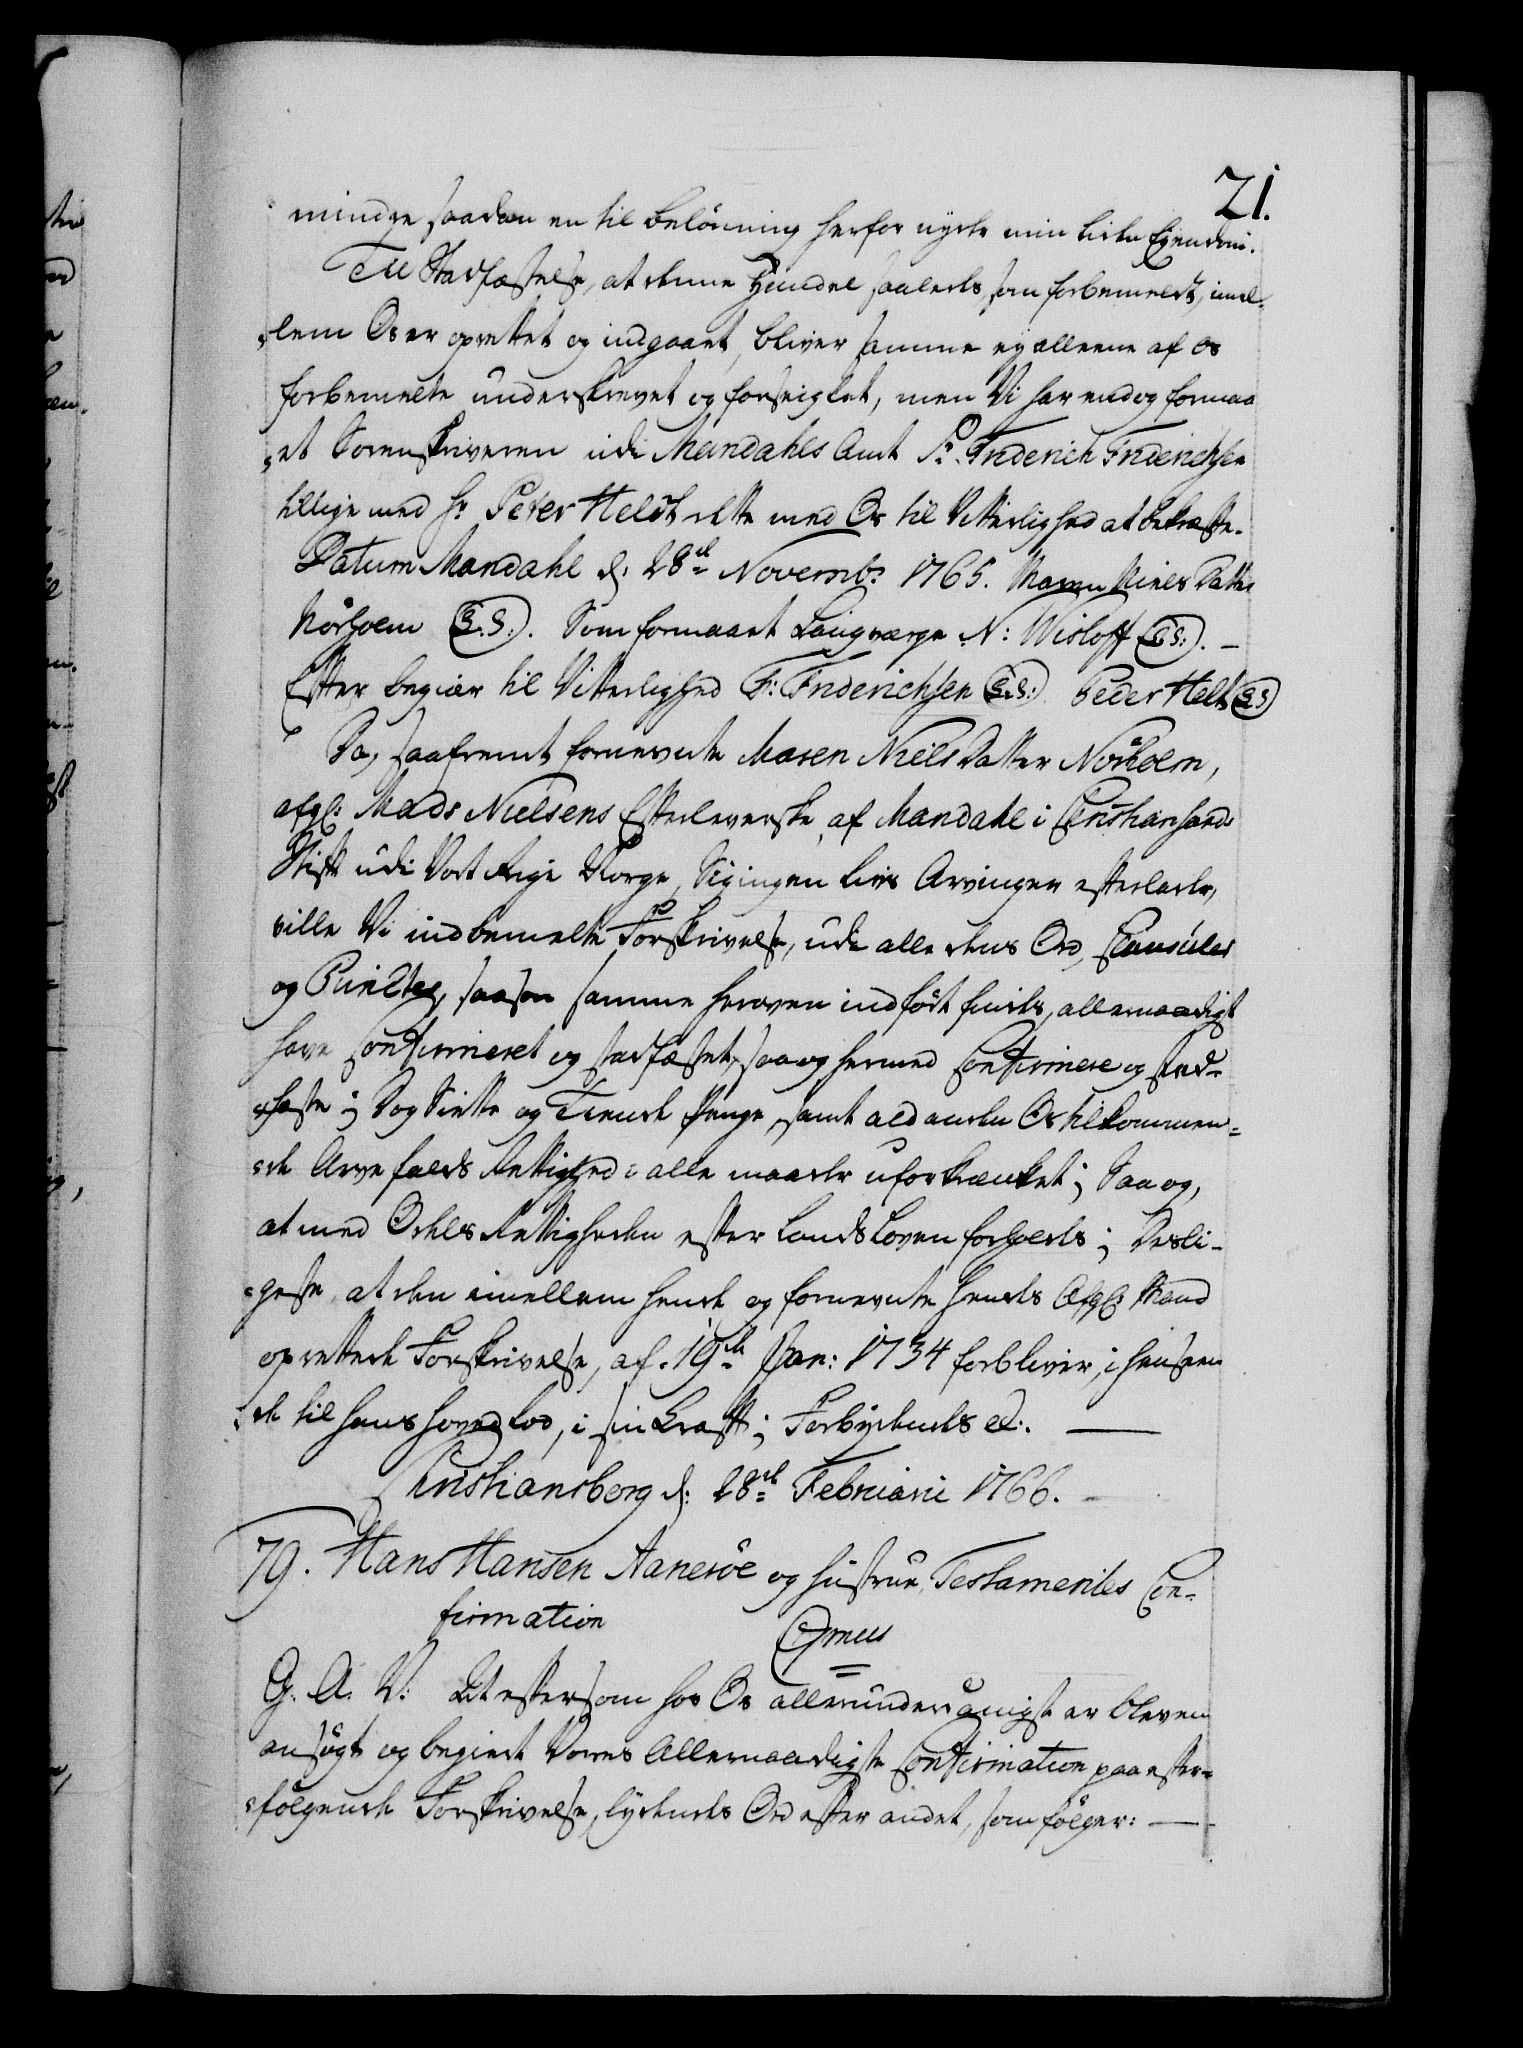 21.
mindre saadan en til belönning herfor nyde min lidin Eyendom.
Til Stadfæstelse, at denne Handel saaledes, som forbemeldt, imel-
lem Os er oprettet og indgaaet, bliver samme ey alleene af Os
forbemelte underskrevet og forseiglet, men Vi har endog formaa
et Sorenskriveren udi Mandahls Amt Sr. Friderich Friderichsen
tillige med Hr. Peter Heldt dette med Os til Vitterlighed at bekræfte.
Datum Mandahl d: 28de Novembr 1765. Maren Niels Datter
Nörholm (L.S.). Som formaaet Laugværge N: Wisloff (L.S:). -
Efter begiær til Vitterlighed F: Friderichsen (L.S:) Peder Helt (L.S)
Da, saafremt fornevnte Maren Niels Datter Nörholm,
afgl: Mads Nielsens Efterleverske af Mandahl i Christiansands
Stift udi Vort Rige Norge, Sig ingen Livs Arvinger efterlader,
ville Vi indbemelte Forskrivelse, udi alle dens Ord, Clausuler
og Puncter, saasom samme heroven indfört findes, allernaadigst
have Confirmeret og stadfæstet, saa og hermed Confirmere og stad-
fæste; Dog Siette og Tiende Penge, samt ald anden Os tilkommen-
de Arve falds Rettighed i alle maader uforkrænket; Saa og,
at med Odels Rettigheden efter Lands Loven forholdes; Desli-
geste at den imellem hende og fornevnte hendes Afgl: Mand
oprettede Forskrivelse, af 19de Jan: 1734 forbliver, i henseen
de til hans hoved lod, i sin Kraft; Forbydendes et:
Christiansborg d: 28de Februarii 1766.
79. Hans Hansen Aaneröe og hustrue, Testamentes Con-
firmation
G. A. V: At eftersom hos Os allerunderdanigst er bleven
ansögt og begiert Vores Allernaadigste Confirmation paa efter-
fölgende Forskrivelse, lydendes Ord efter andet, som fölger: